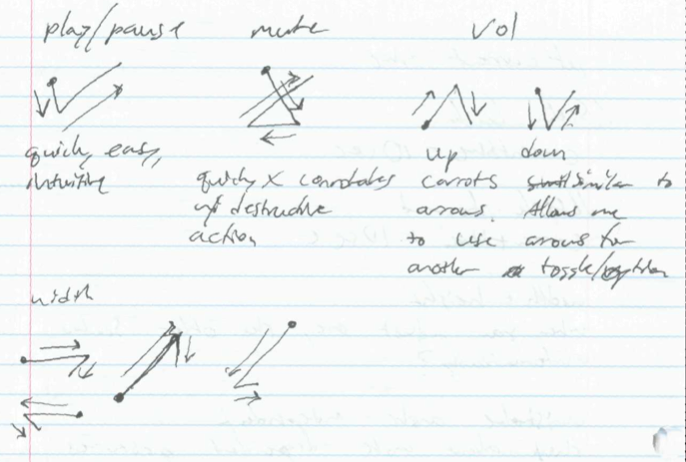 play/pause
mute
vol
quick, easy,
intuitive
quick, X connotates
w/ destructive
action
up
down
carrots similar to
arrows. Allows me
to use arrows for
another toggle/option
width